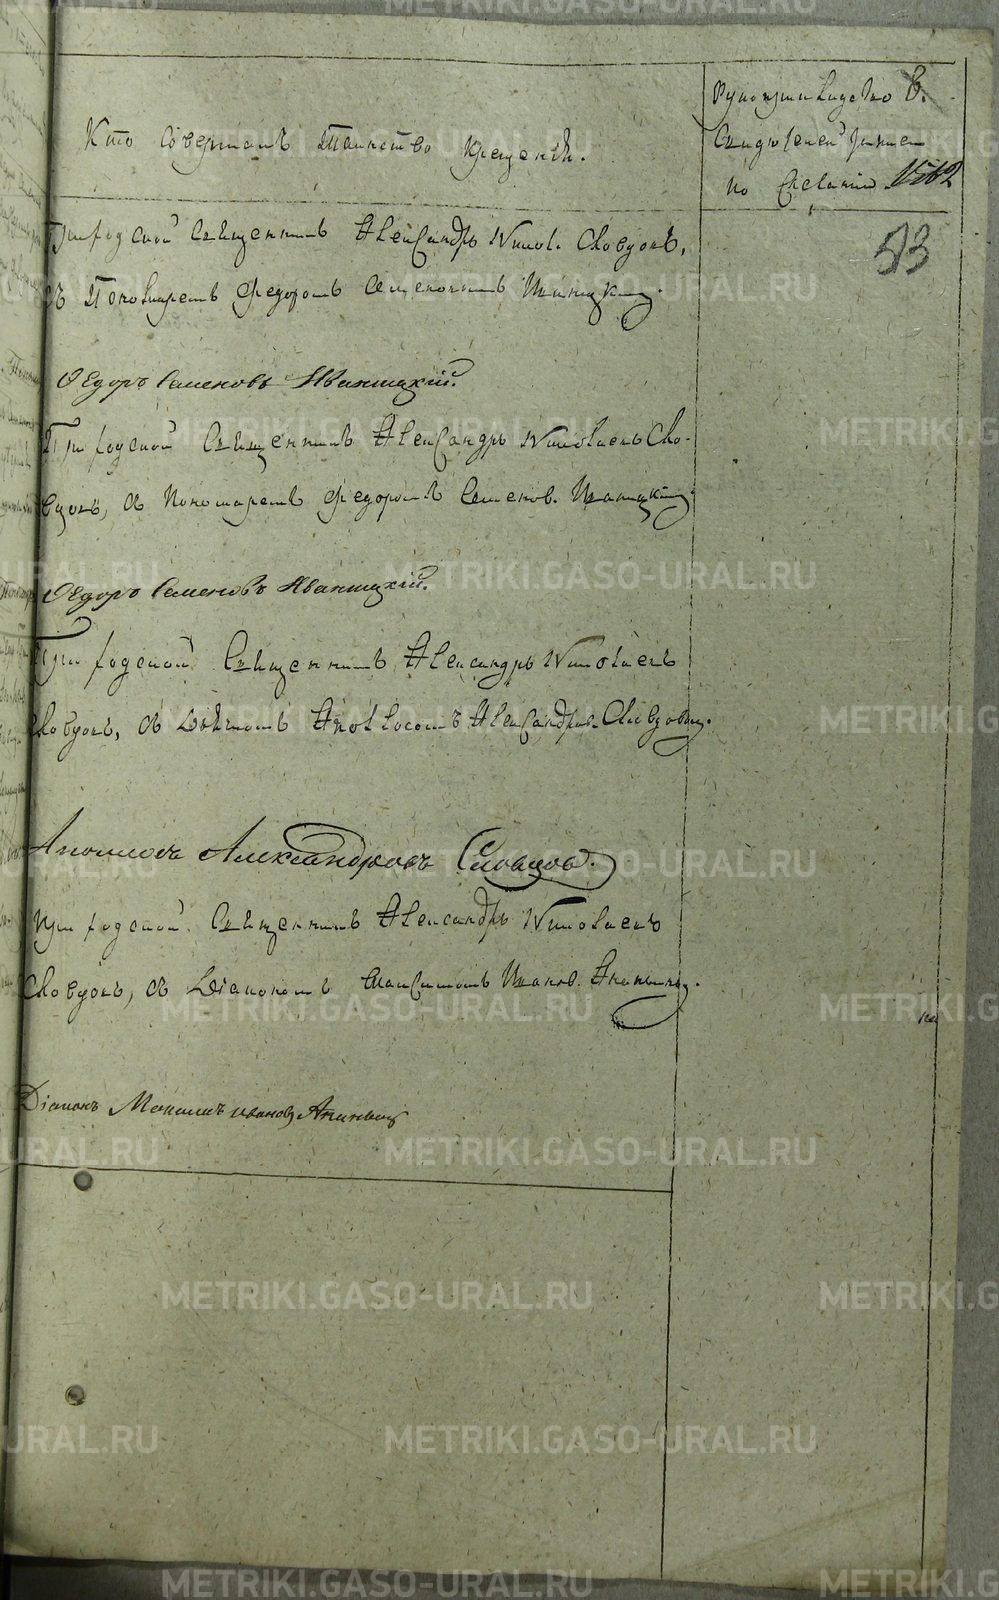 Кто совершалъ таинство крещенія.
Рукоприкладство
свидѣтелей записи
по желанію
6.
1562
513
Приходской Священникъ Александръ Никол. Словцовъ,
съ Пономаремъ Федоромъ Семеновымъ Иваницкимъ.
Ѳедоръ Семеновъ Иваницкій.
Приходской Священникъ Александръ Николаевъ Сло-
вцовъ, съ Пономаремъ Федоромъ Семенов. Иваницкимъ.
Ѳедоръ Семеновъ Иваницкій.
Приходской Священникъ Александръ Николаевъ
Словцовъ, съ Дьячкомъ Аполлосомъ Александров. Словцовым.
Аполлосъ Александровъ Словцов.
Приходской Священникъ Александръ Николаевъ
Словцовъ, съ Діакономъ Максимомъ Иванов. Ананьиным.
Діаконъ Максимъ Ивановъ Ананьинъ
METRIKI.GASO-URAL.RU